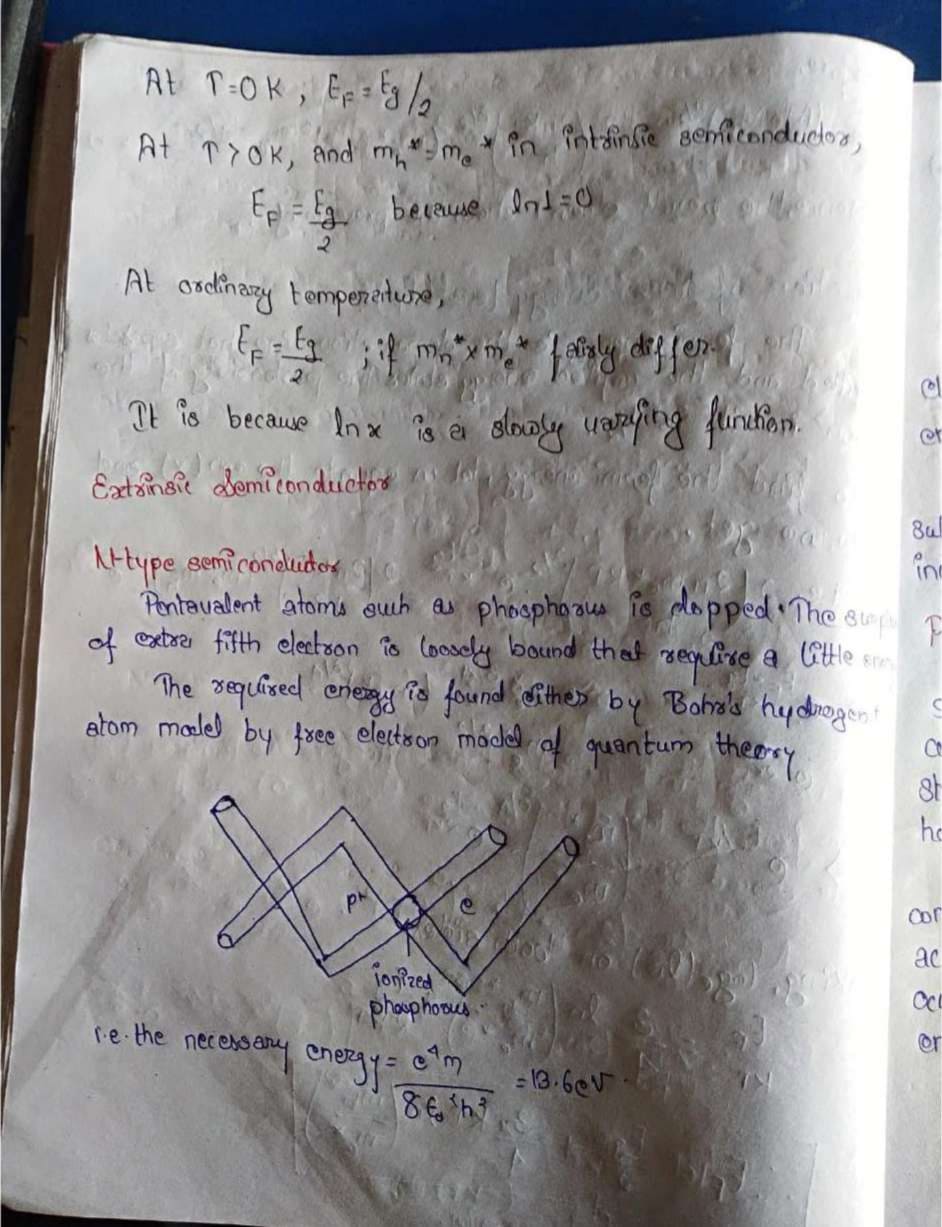 At T=0K, E_F = Eg/2
At T>0K, and m_h* = m_e* in intrinsic semiconductor,
E_F = Eg/2 because ln1=0
At ordinary temperature,
E_F = Eg/2 ; if m_h* x m_e* fairly differ.
It is because lnx is a slowly varying function.
Extrinsic Semiconductor
N-type semiconductor
Pentavalent atoms such as phosphorus is dopped. The
of extra fifth electron is loosely bound that require a little
The required energy is found either by Bohr's hydrogen
atom model by free electron model of quantum theory
P+ e
ionized
phosphorus.
i.e. the necessary energy = e⁴m / 8ε₀²h² = 13.6eV.